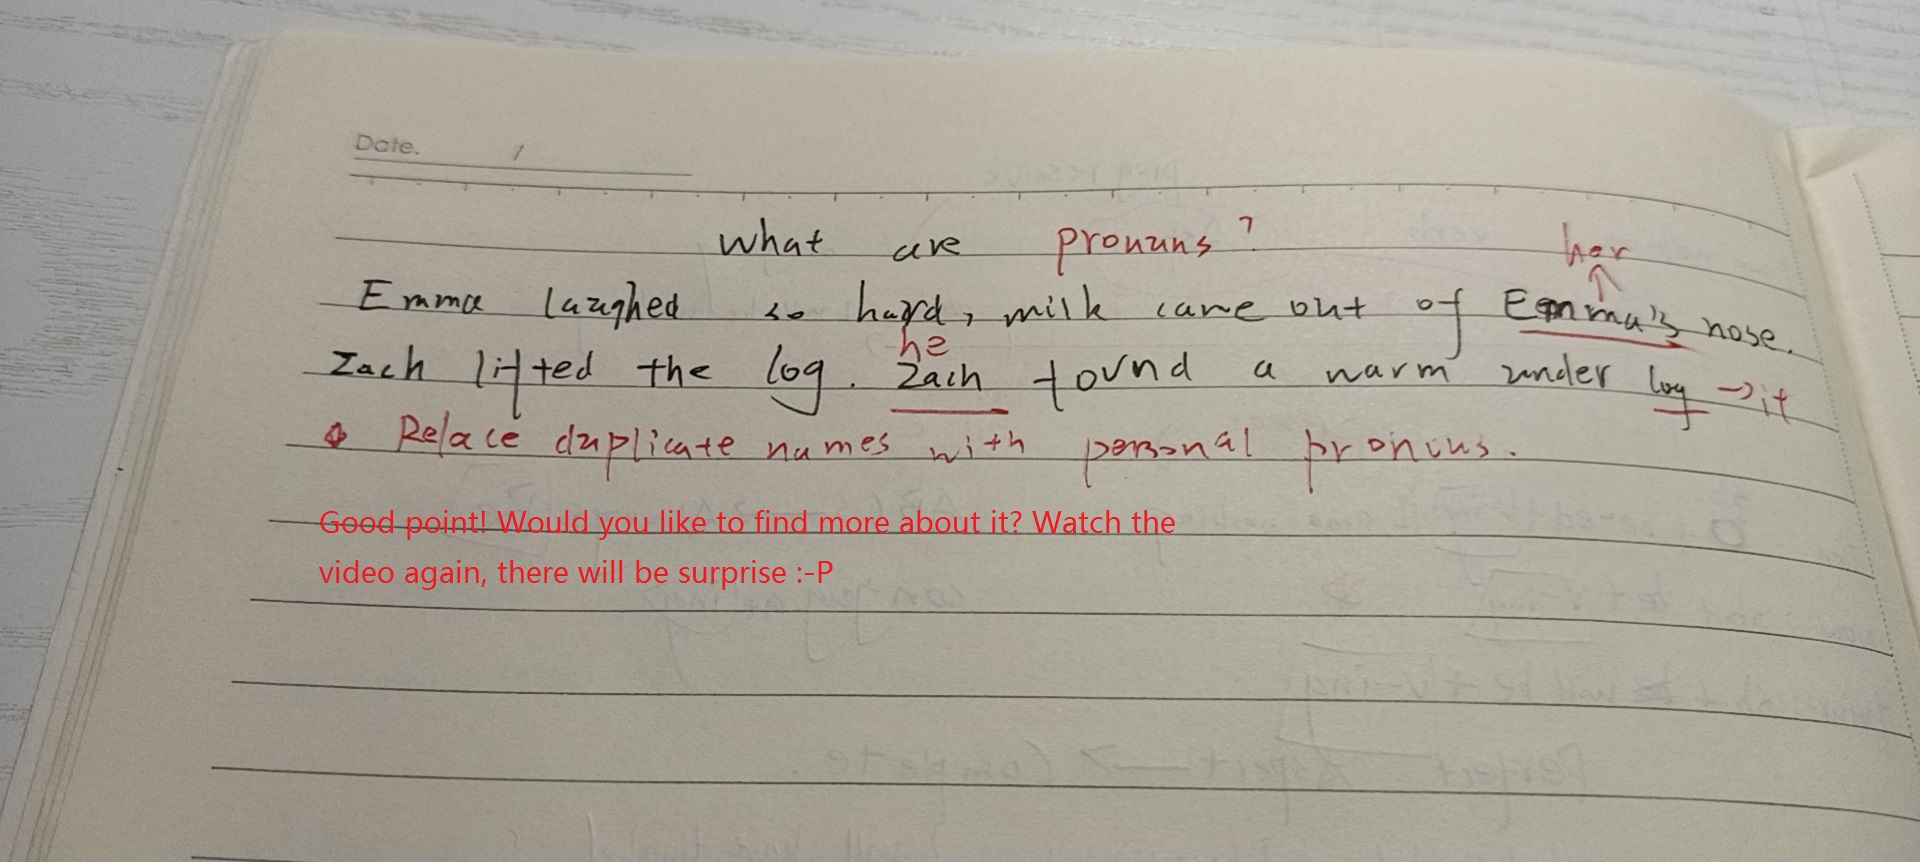 Date. /
What are pronuns?
her
Emma laughed so hard, milk came out of Emma's nose.
he
Zach lifted the log. Zach found a warm under log → it
Relace duplicate names with personal pronous.
Good point! Would you like to find more about it? Watch the
video again, there will be surprise :-P